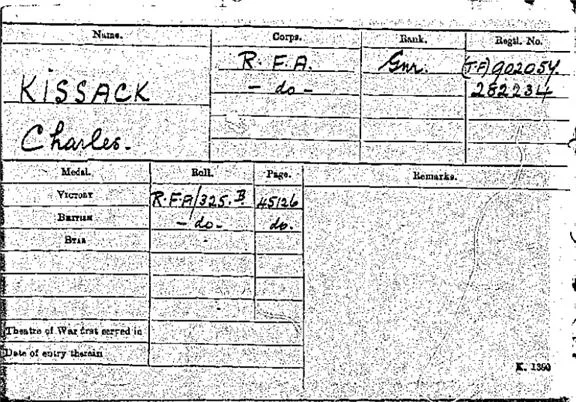 Name. Corps. Rank. Regtl. No.
R.F.A. Gnr. (T.F.) 902054
KISSACK - do - 282234
Charles.
Medal. Roll. Page. Remarks.
VICTORY R.F.A/325.B. 45126
BRITISH - do - do.
STAR
Theatre of War first served in
Date of entry therein
K. 1380